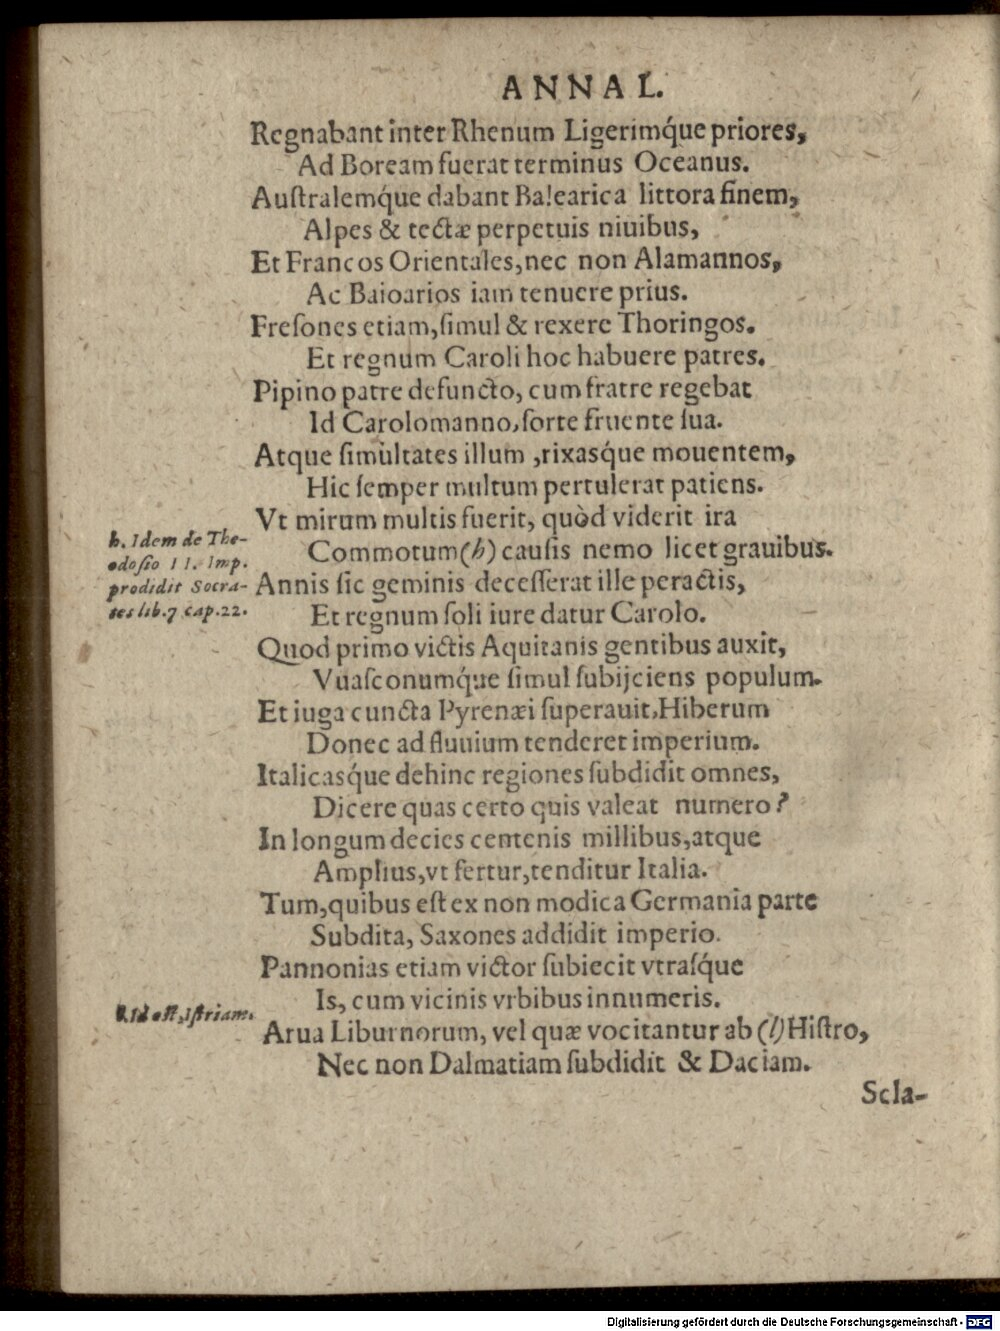 ANNAL.
Regnabant inter Rhenum Ligerimq́ue priores,
Ad Boream fuerat terminus Oceanus.
Auſtralemq́ue dabant Balearica littora finem,
Alpes & tectæ perpetuis niuibus,
Et Francos Orientales, nec non Alamannos,
Ac Baioarios iam tenuere prius.
Freſones etiam, ſimul & rexere Thoringos.
Et regnum Caroli hoc habuere patres.
Pipino patre defuncto, cum fratre regebat
Id Carolomanno, ſorte fruente ſua.
Atque ſimultates illum, rixasq́ue mouentem,
Hic ſemper multum pertulerat patiens.
Vt mirum multis fuerit, quòd viderit ira
Commotum (h) cauſis nemo licet grauibus.
h. Idem de The-
odoſio II. Imp.
prodidit Socra-
tes lib.7 cap.22.
Annis ſic geminis deceſſerat ille peractis,
Et regnum ſoli iure datur Carolo.
Quod primo victis Aquitanis gentibus auxit,
Vuaſconumq́ue ſimul ſubijciens populum.
Et iuga cuncta Pyrenæi ſuperauit, Hiberum
Donec ad fluuium tenderet imperium.
Italicasq́ue dehinc regiones ſubdidit omnes,
Dicere quas certo quis valeat numero?
In longum decies centenis millibus, atque
Amplius, vt fertur, tenditur Italia.
Tum, quibus eſt ex non modica Germania parte
Subdita, Saxones addidit imperio.
Pannonias etiam victor ſubiecit vtraſq́ue
Is, cum vicinis vrbibus innumeris.
l. Id eſt, Iſtriam.
Arua Liburnorum, vel quæ vocitantur ab (l) Hiſtro,
Nec non Dalmatiam ſubdidit & Daciam.
Scla-
Digitalisierung gefördert durch die Deutsche Forschungsgemeinschaft - DFG